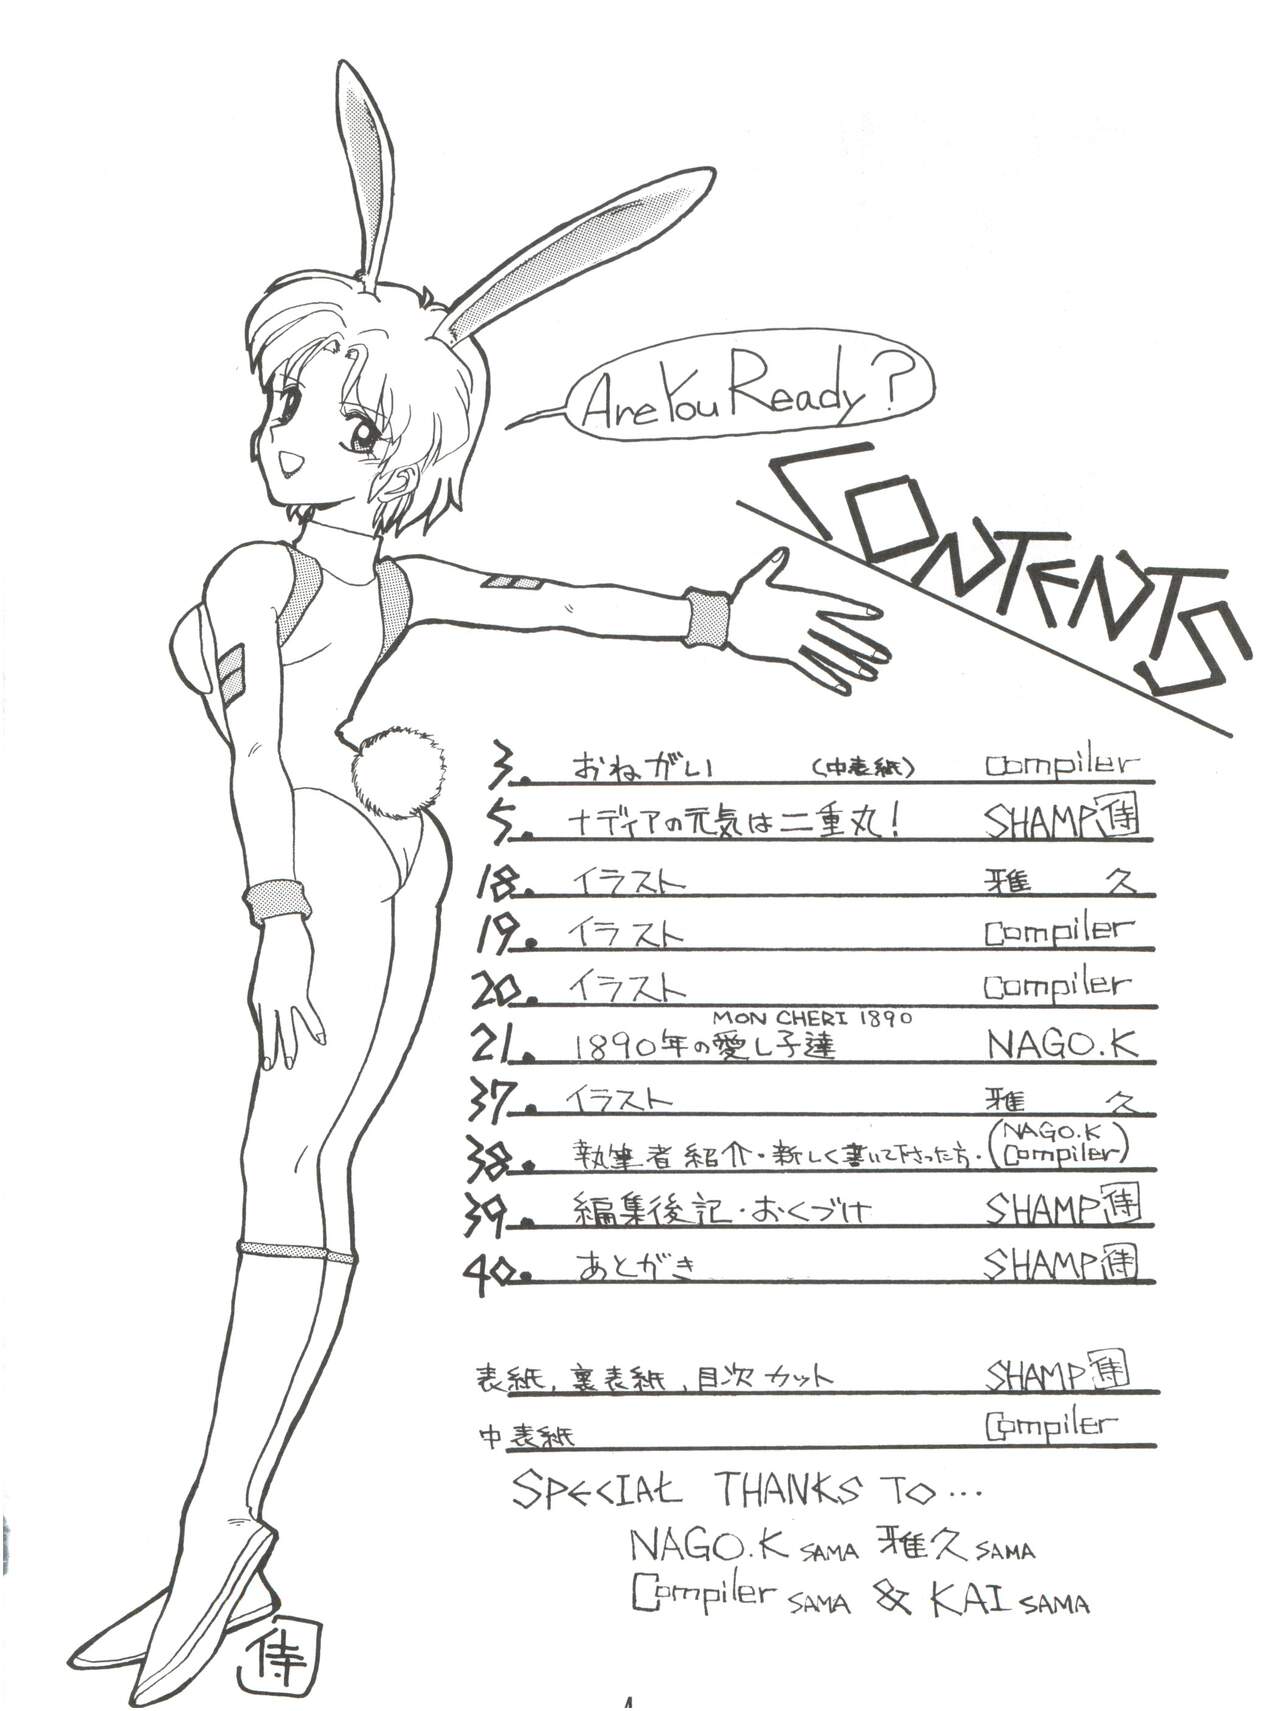 Are You Ready?
CONTENTS
3. おねがい (中表紙) Compiler
5. ナディアの元気は二重丸! SHAMP侍
18. イラスト 雅久
19. イラスト Compiler
20. イラスト Compiler
MON CHERI 1890
21. 1890年の愛し子達 NAGO.K
37. イラスト 雅久
38. 執筆者紹介・新しく書いて下さった方・(NAGO.K Compiler)
39. 編集後記・おくづけ SHAMP侍
40. あとがき SHAMP侍
表紙, 裏表紙, 目次カット SHAMP侍
中表紙 Compiler
SPECIAL THANKS TO...
NAGO.K SAMA 雅久 SAMA
Compiler SAMA & KAI SAMA
侍
4